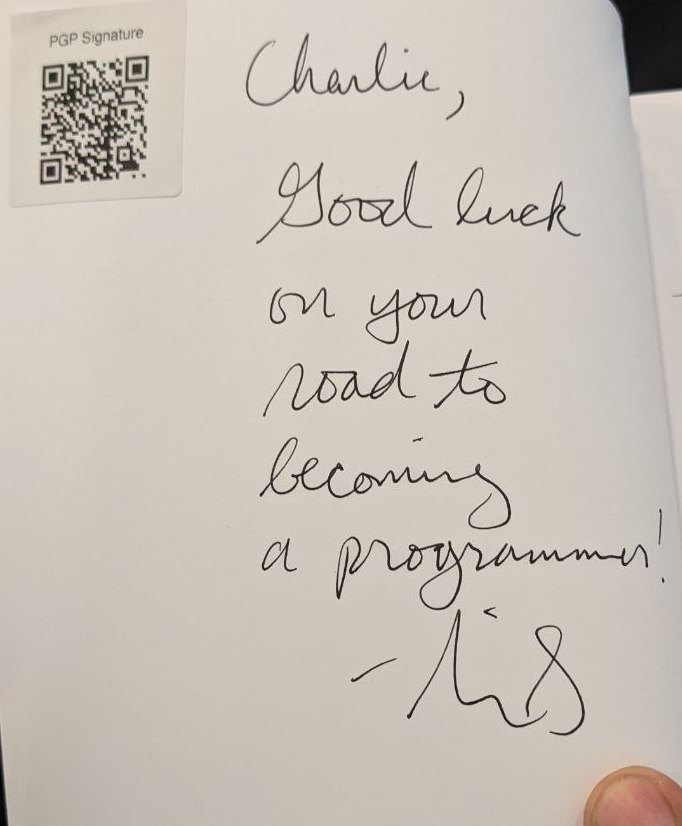 PGP Signature
Charlie,
Good luck
on your
road to
becoming
a programmer!